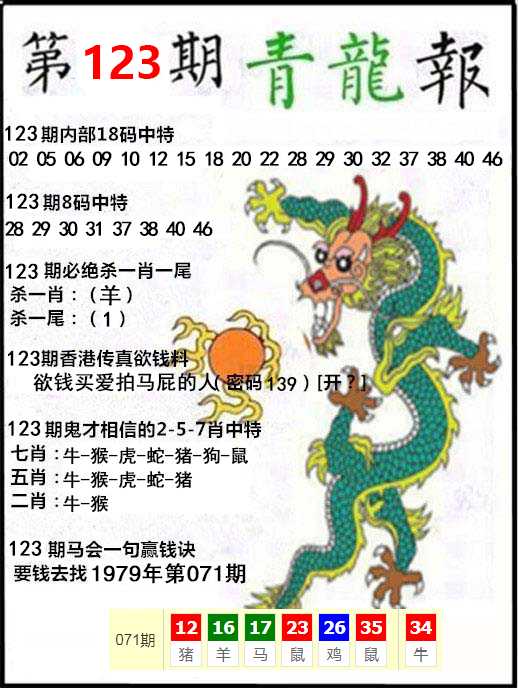 第123期 青龍報
123期内部18码中特
02 05 06 09 10 12 15 18 20 22 28 29 30 32 37 38 40 46
123期8码中特
28 29 30 31 37 38 40 46
123期必绝杀一肖一尾
杀一肖：（羊）
杀一尾：（1）
123期香港传真欲钱料
欲钱买爱拍马屁的人（密码139）[开？]
123期鬼才相信的2-5-7肖中特
七肖：牛-猴-虎-蛇-猪-狗-鼠
五肖：牛-猴-虎-蛇-猪
二肖：牛-猴
123期马会一句赢钱诀
要钱去找1979年第071期
071期 12 16 17 23 26 35 34
猪 羊 马 鼠 鸡 鼠 牛